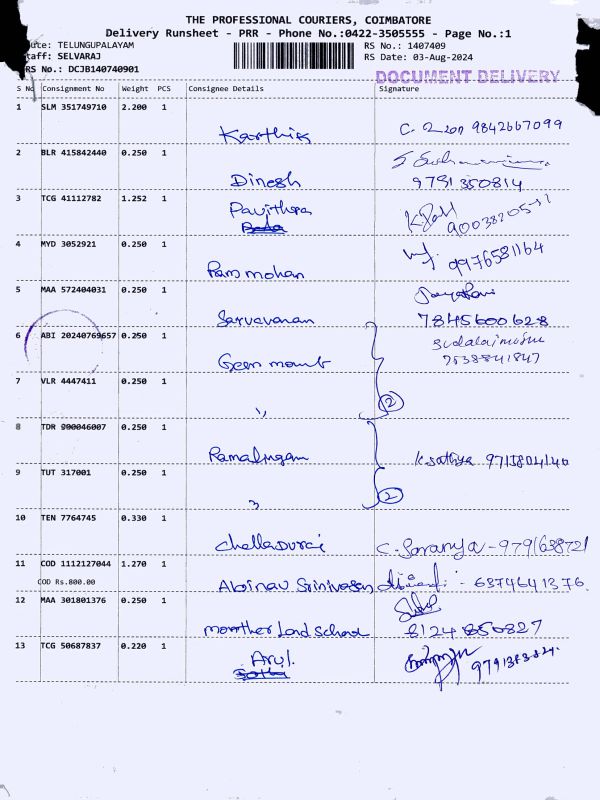 THE PROFESSIONAL COURIERS, COIMBATORE
Delivery Runsheet - PRR - Phone No.:0422-3505555 - Page No.:1
ute: TELUNGUPALAYAM
RS No.: 1407409
taff: SELVARAJ
RS Date: 03-Aug-2024
RS No.: DCJB140740901
DOCUMENT DELIVERY
S No Consignment No Weight PCS Consignee Details Signature
1 SLM 351749710 2.200 1
Karthik 9842667099
2 BLR 415842440 0.250 1
Dinesh 9791350814
3 TCG 41112782 1.252 1
Pavithra
4 MYD 3052921 0.250 1
Ram mohan 9976581164
5 MAA 572404031 0.250 1
Sarvavanan 7845600628
6 ABI 20240769657 0.250 1
Geen mount 7538841847
7 VLR 4447411 0.250 1
" 2
8 TDR 900046007 0.250 1
Ramalingam K. Sathya
9 TUT 317001 0.250 1
" 2
10 TEN 7764745 0.330 1
Chelladurai C. Saranya - 9791638721
11 COD 1112127044 1.270 1
COD Rs.800.00
Abinav Srinivasan - 6374641376
12 MAA 301801376 0.250 1
8124850827
13 TCG 50687837 0.220 1
Arul.